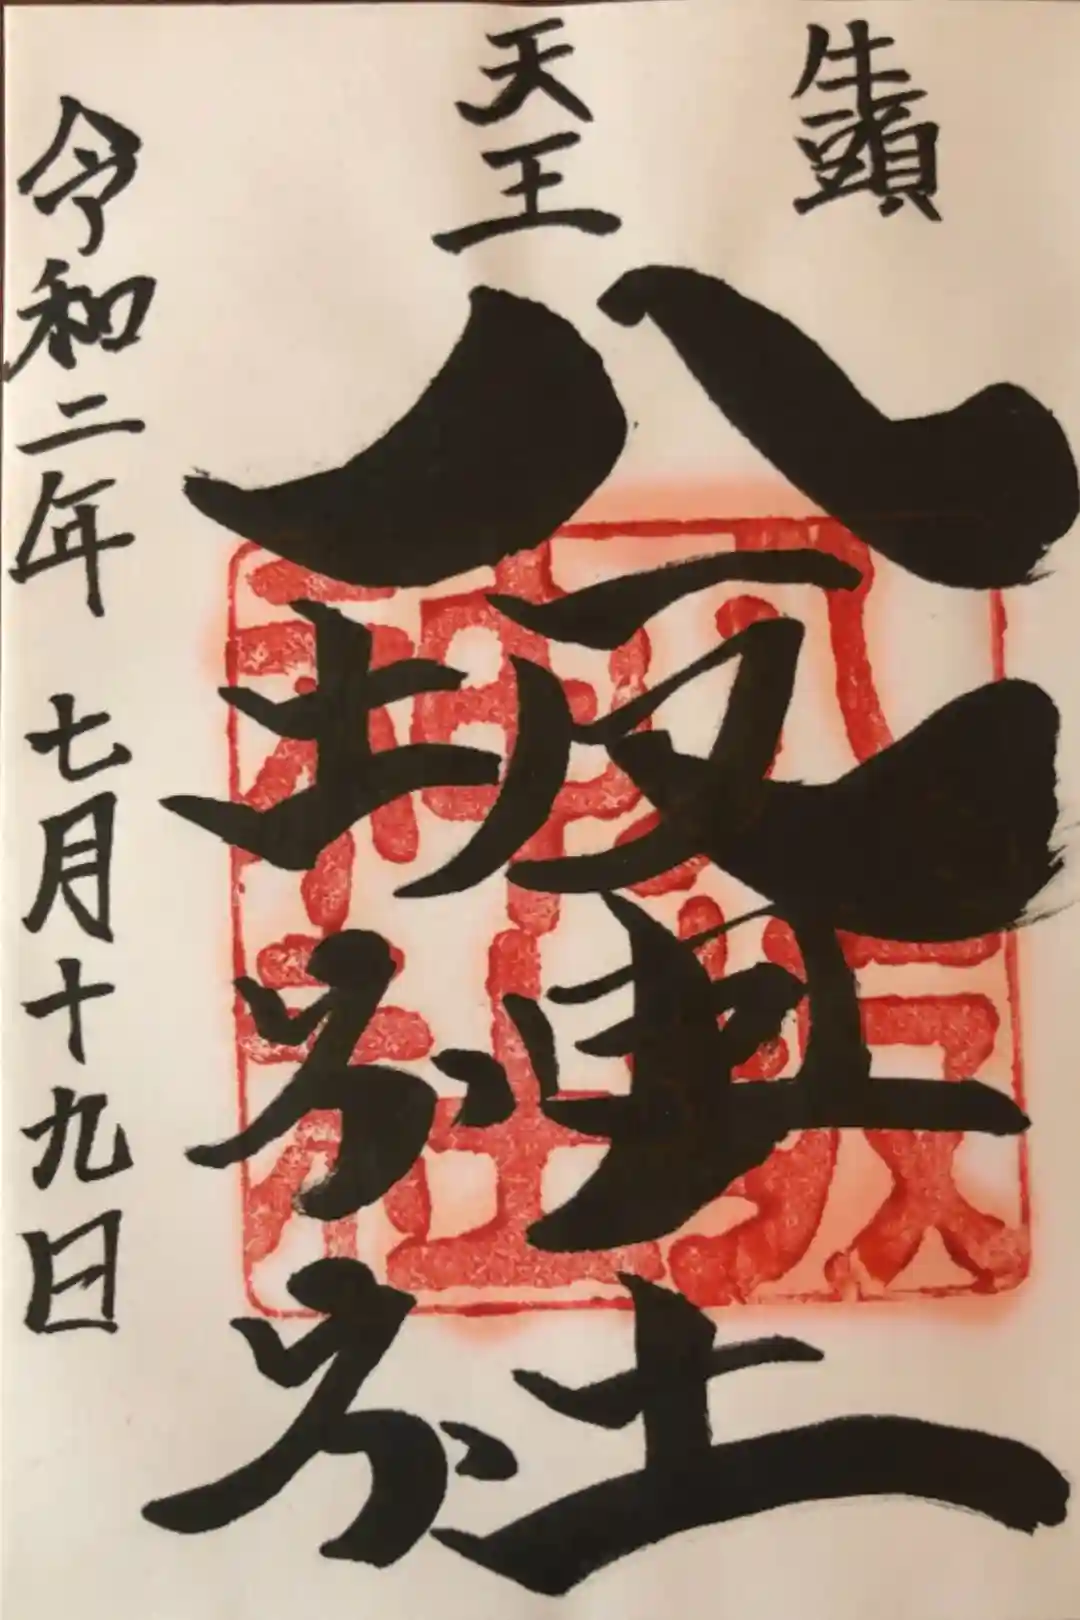 牛頭
天王
八坂神社
八坂神社
令和二年 七月十九日